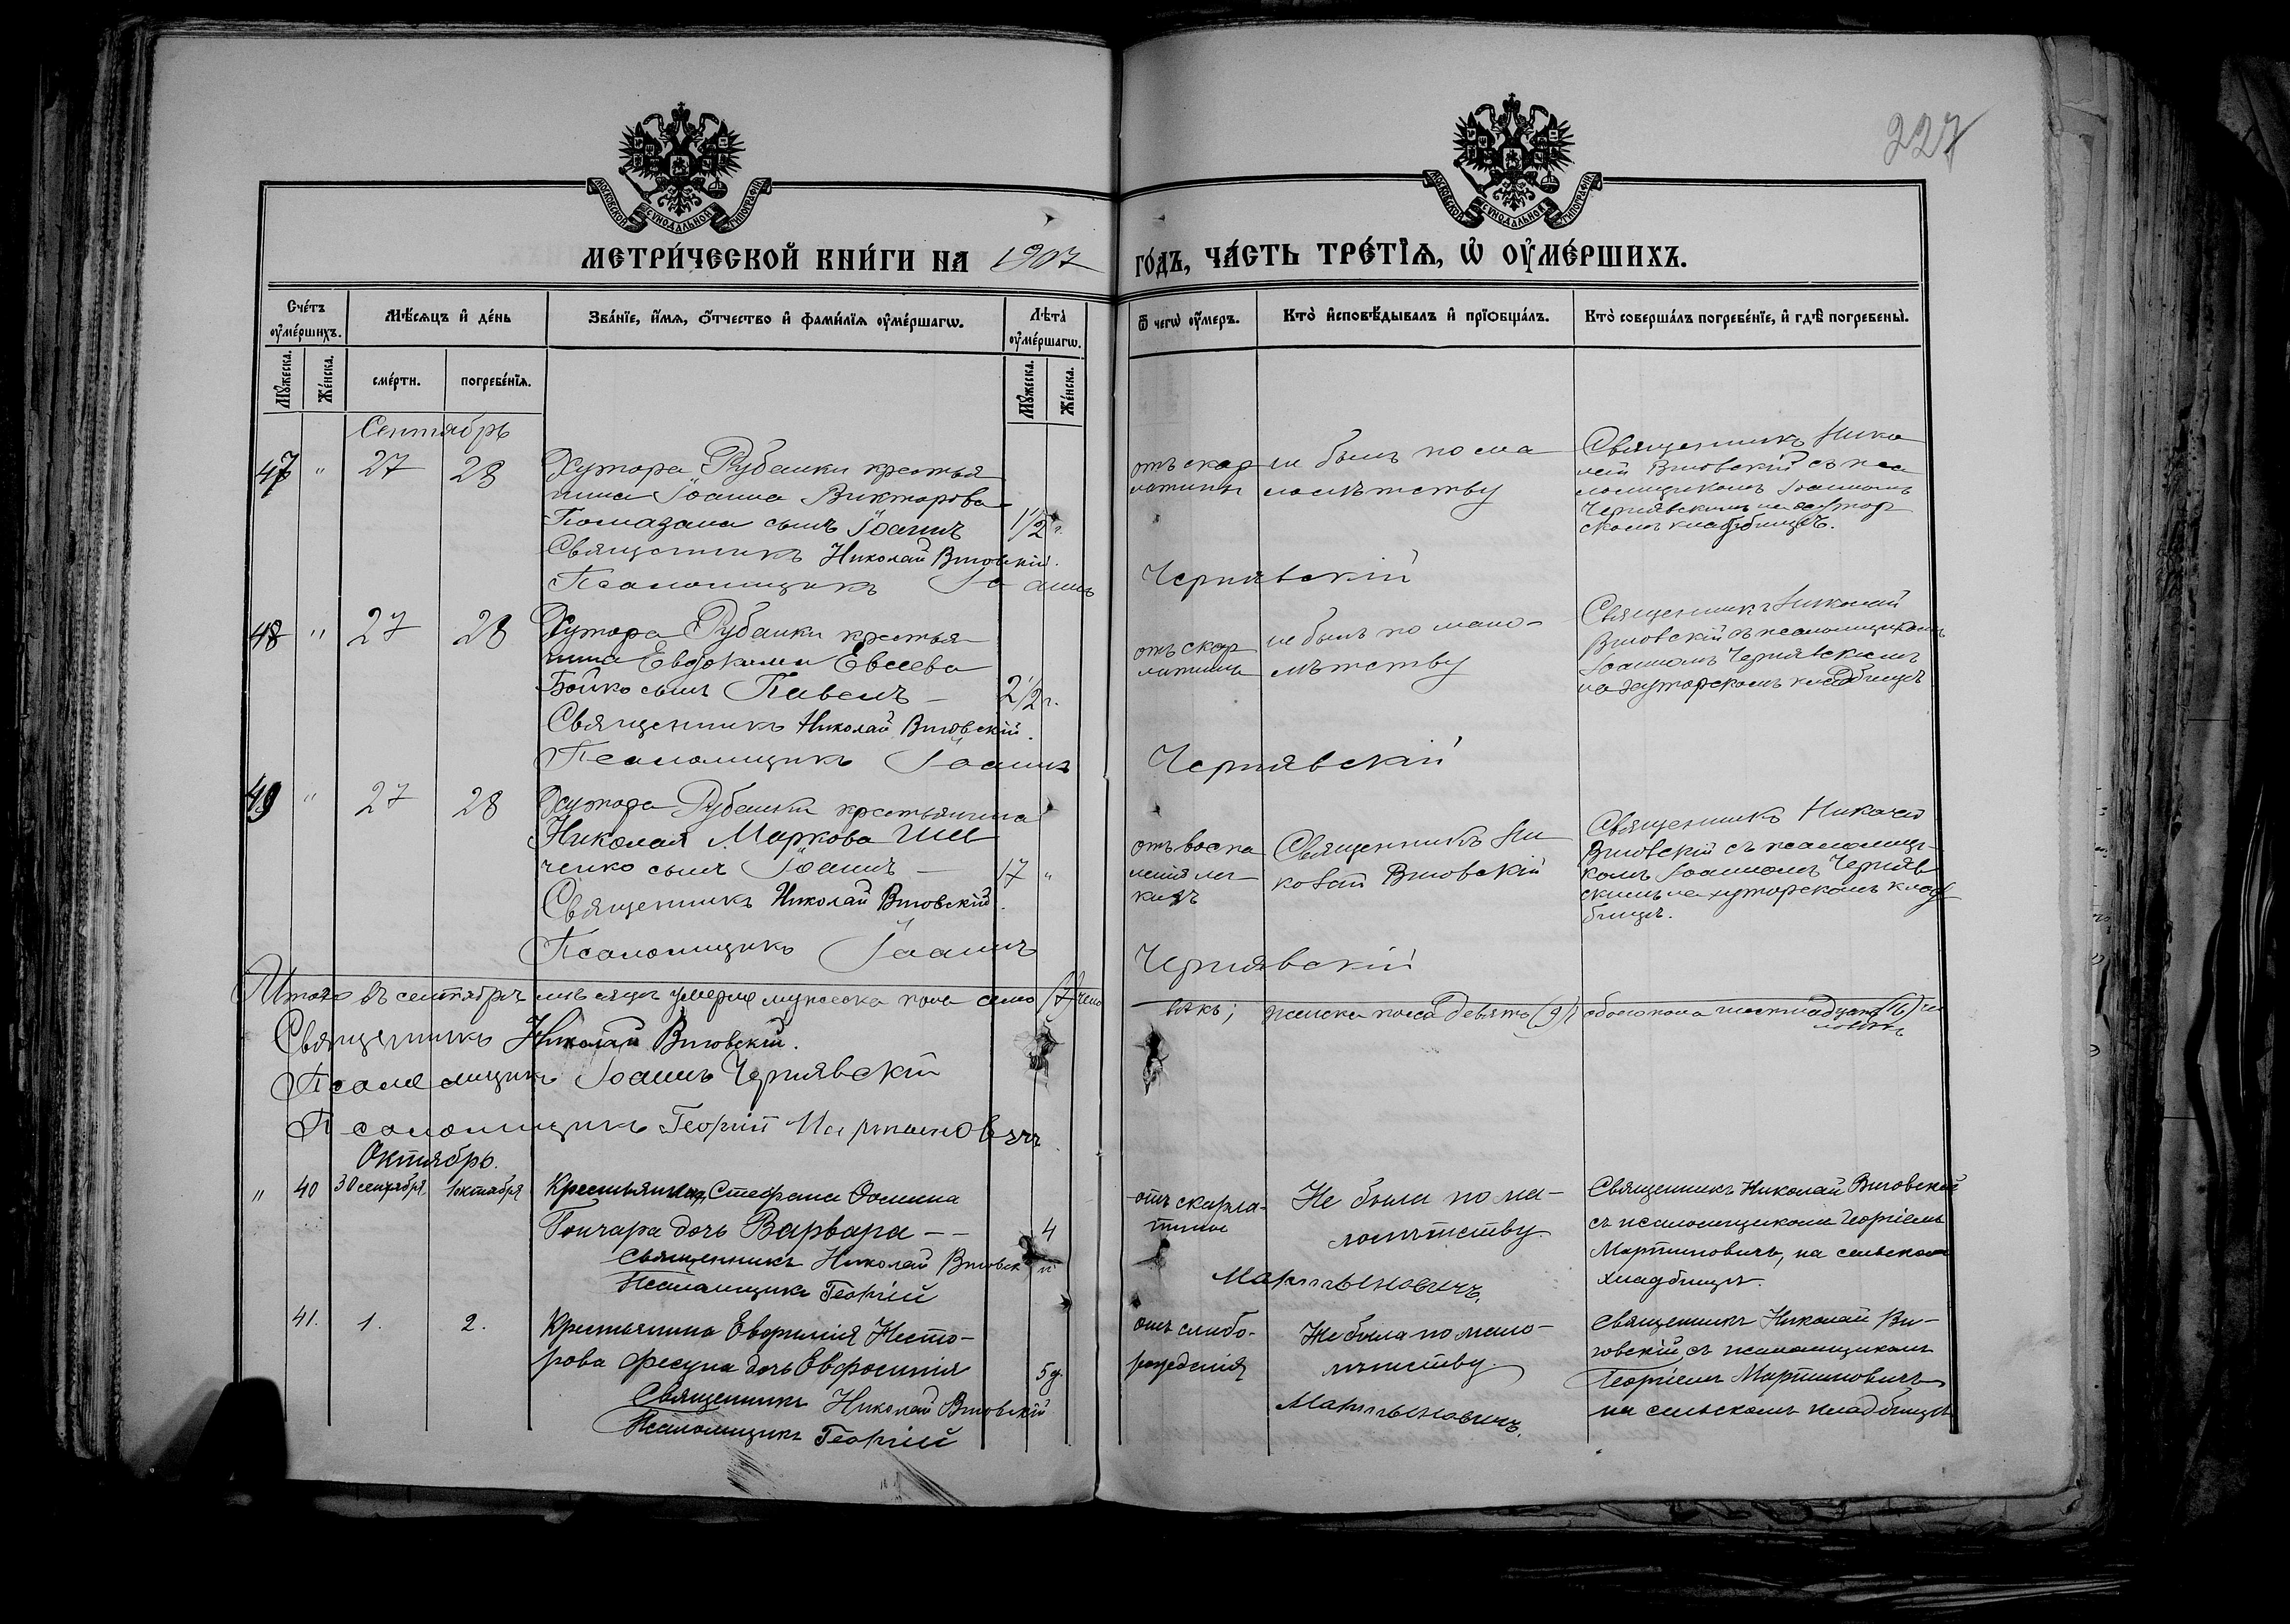 227
МОСКОВСКОЙ СѴНОДАЛЬНОЙ ТИПОГРАФІИ
МОСКОВСКОЙ СѴНОДАЛЬНОЙ ТИПОГРАФІИ
МЕТРИ́ЧЕСКОЙ КНИ́ГИ НА 1907 ГО́ДЪ, ЧА́СТЬ ТРЕ́ТІѦ, Ѡ҆ ОУ҆МЕ́РШИХЪ.
Сче́тъ оу҆ме́ршихъ.
Мѣ́сѧцъ и҆ де́нь
Зва́нїе, и҆́мѧ, ѻ҆́тчество и҆ фами́лїѧ оу҆ме́ршагѡ.
Лѣ̀та̀ оу҆ме́ршагѡ.
Ѿ чегѡ̀ оу҆́меръ.
Кто̀ и҆сповѣ́дывалъ и҆ прїѡбща́лъ.
Кто̀ соверша́лъ погребе́нїе, и҆ гдѣ̀ погребены̀.
Мꙋ́жеска. Же́нска.
сме́рти. погребе́нїѧ.
Мꙋ́жеска. Же́нска.
Сентябрь
47 " 27 28
Хутора Рубанки крестья
нина Іоанна Викторова
Помазана сынъ Іоаннъ 1½ г.
Священникъ Николай Виговскій.
Псаломщикъ Іоаннъ Чернявскій
отъ скар
латины
не былъ по ма
лолѣтству
Священникъ Нико
лай Виговскій съ пса
ломщикомъ Іоанномъ
Чернявскимъ на хутор
скомъ кладбищѣ.
48 " 27 28
Хутора Рубанки крестья
нина Евдокима Евсеева
Бойко сынъ Павелъ — 2½ г.
Священникъ Николай Виговскій.
Псаломщикъ Іоаннъ Чернявскій
отъ скар
латины
не былъ по мало-
лѣтству
Священникъ Николай
Виговскій съ псаломщикомъ
Іоанномъ Чернявскимъ
на хуторскомъ кладбищѣ
49 " 27 28
Хутора Рубанки крестьянина
Николая Маркова Шев
ченко сынъ Іоаннъ — 17 "
Священникъ Николай Виговскій.
Псаломщикъ Іоаннъ Чернявскій
отъ воспа
ленія лег
кихъ
Священникъ Ни
колай Виговскій
Священникъ Николай
Виговскій съ псаломщи-
комъ Іоанномъ Черняв
скимъ на хуторскомъ клад
бищѣ.
Итого въ сентябрѣ мѣсяцѣ умерло мужеска пола семь (7) чело
вѣкъ; женска пола девять (9) обоего пола шестнадцать (16) че
ловѣкъ
Священникъ Николай Виговскій.
Псаломщикъ Іоаннъ Чернявскій
Псаломщикъ Георгій Мартыновичъ
Октябрь.
" 40 30 сентября 1 октября
Крестьянина Стефана Фомина
Гончара дочь Варвара — — 4
Священникъ Николай Виговскій
Псаломщикъ Георгій Мартыновичъ.
отъ скарла-
тины
Не была по ма-
лолѣтству.
Священникъ Николай Виговскій
съ псаломщикомъ Георгіемъ
Мартиновичъ, на сельскомъ
кладбищѣ.
41. 1. 2.
Крестьянина Евфимія Несто-
рова Фесуна дочь Евфросинія 5 д.
Священникъ Николай Виговскій
Псаломщикъ Георгій Мартыновичъ.
отъ слабо-
рожденія
Не была по мало-
лѣтству.
Священникъ Николай Ви-
говскій съ псаломщикомъ
Георгіемъ Мартиновичъ
на сельскомъ кладбищѣ